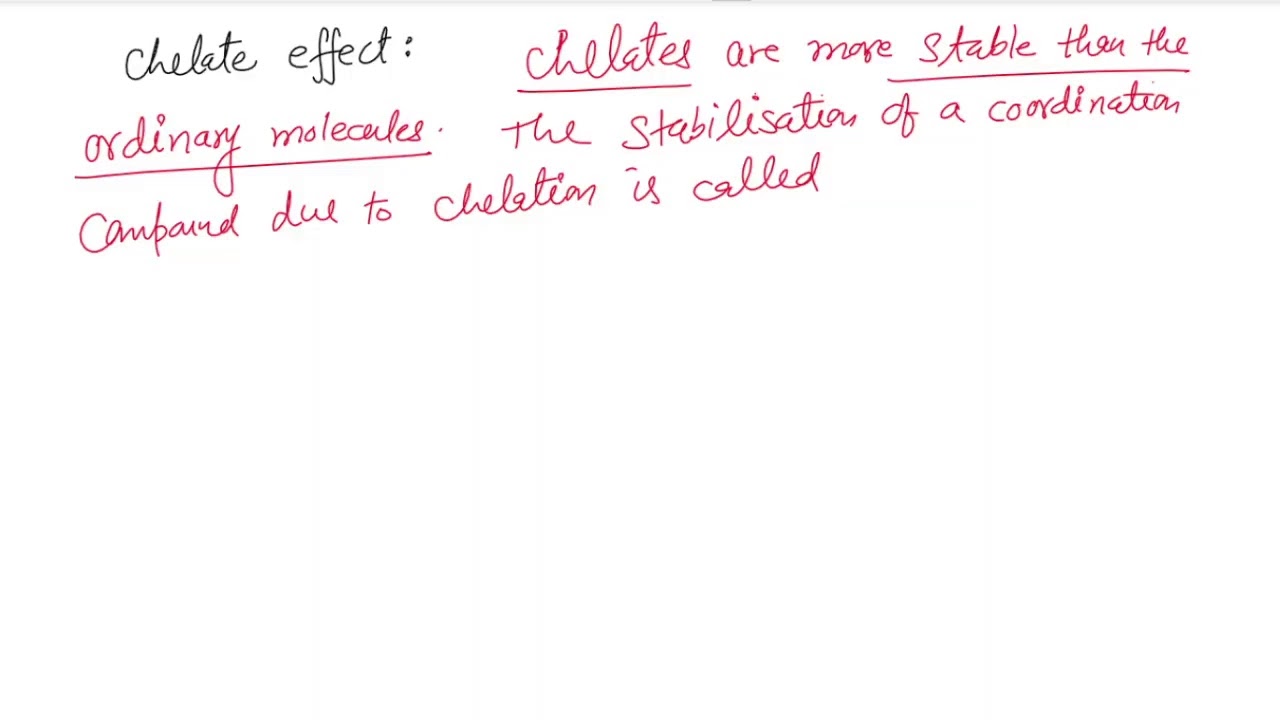 Chelate effect: Chelates are more stable than the
ordinary molecules. The stabilisation of a coordination
Compound due to chelation is called